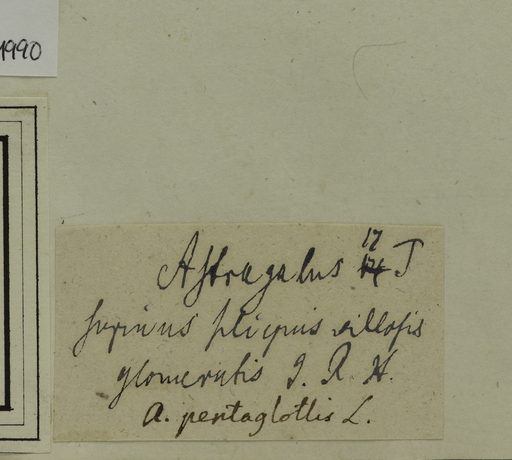 1990
17
Astragalus 14 T
supinus siliquis villosis
glomeratis J. R. H.
A. pentaglottis L.